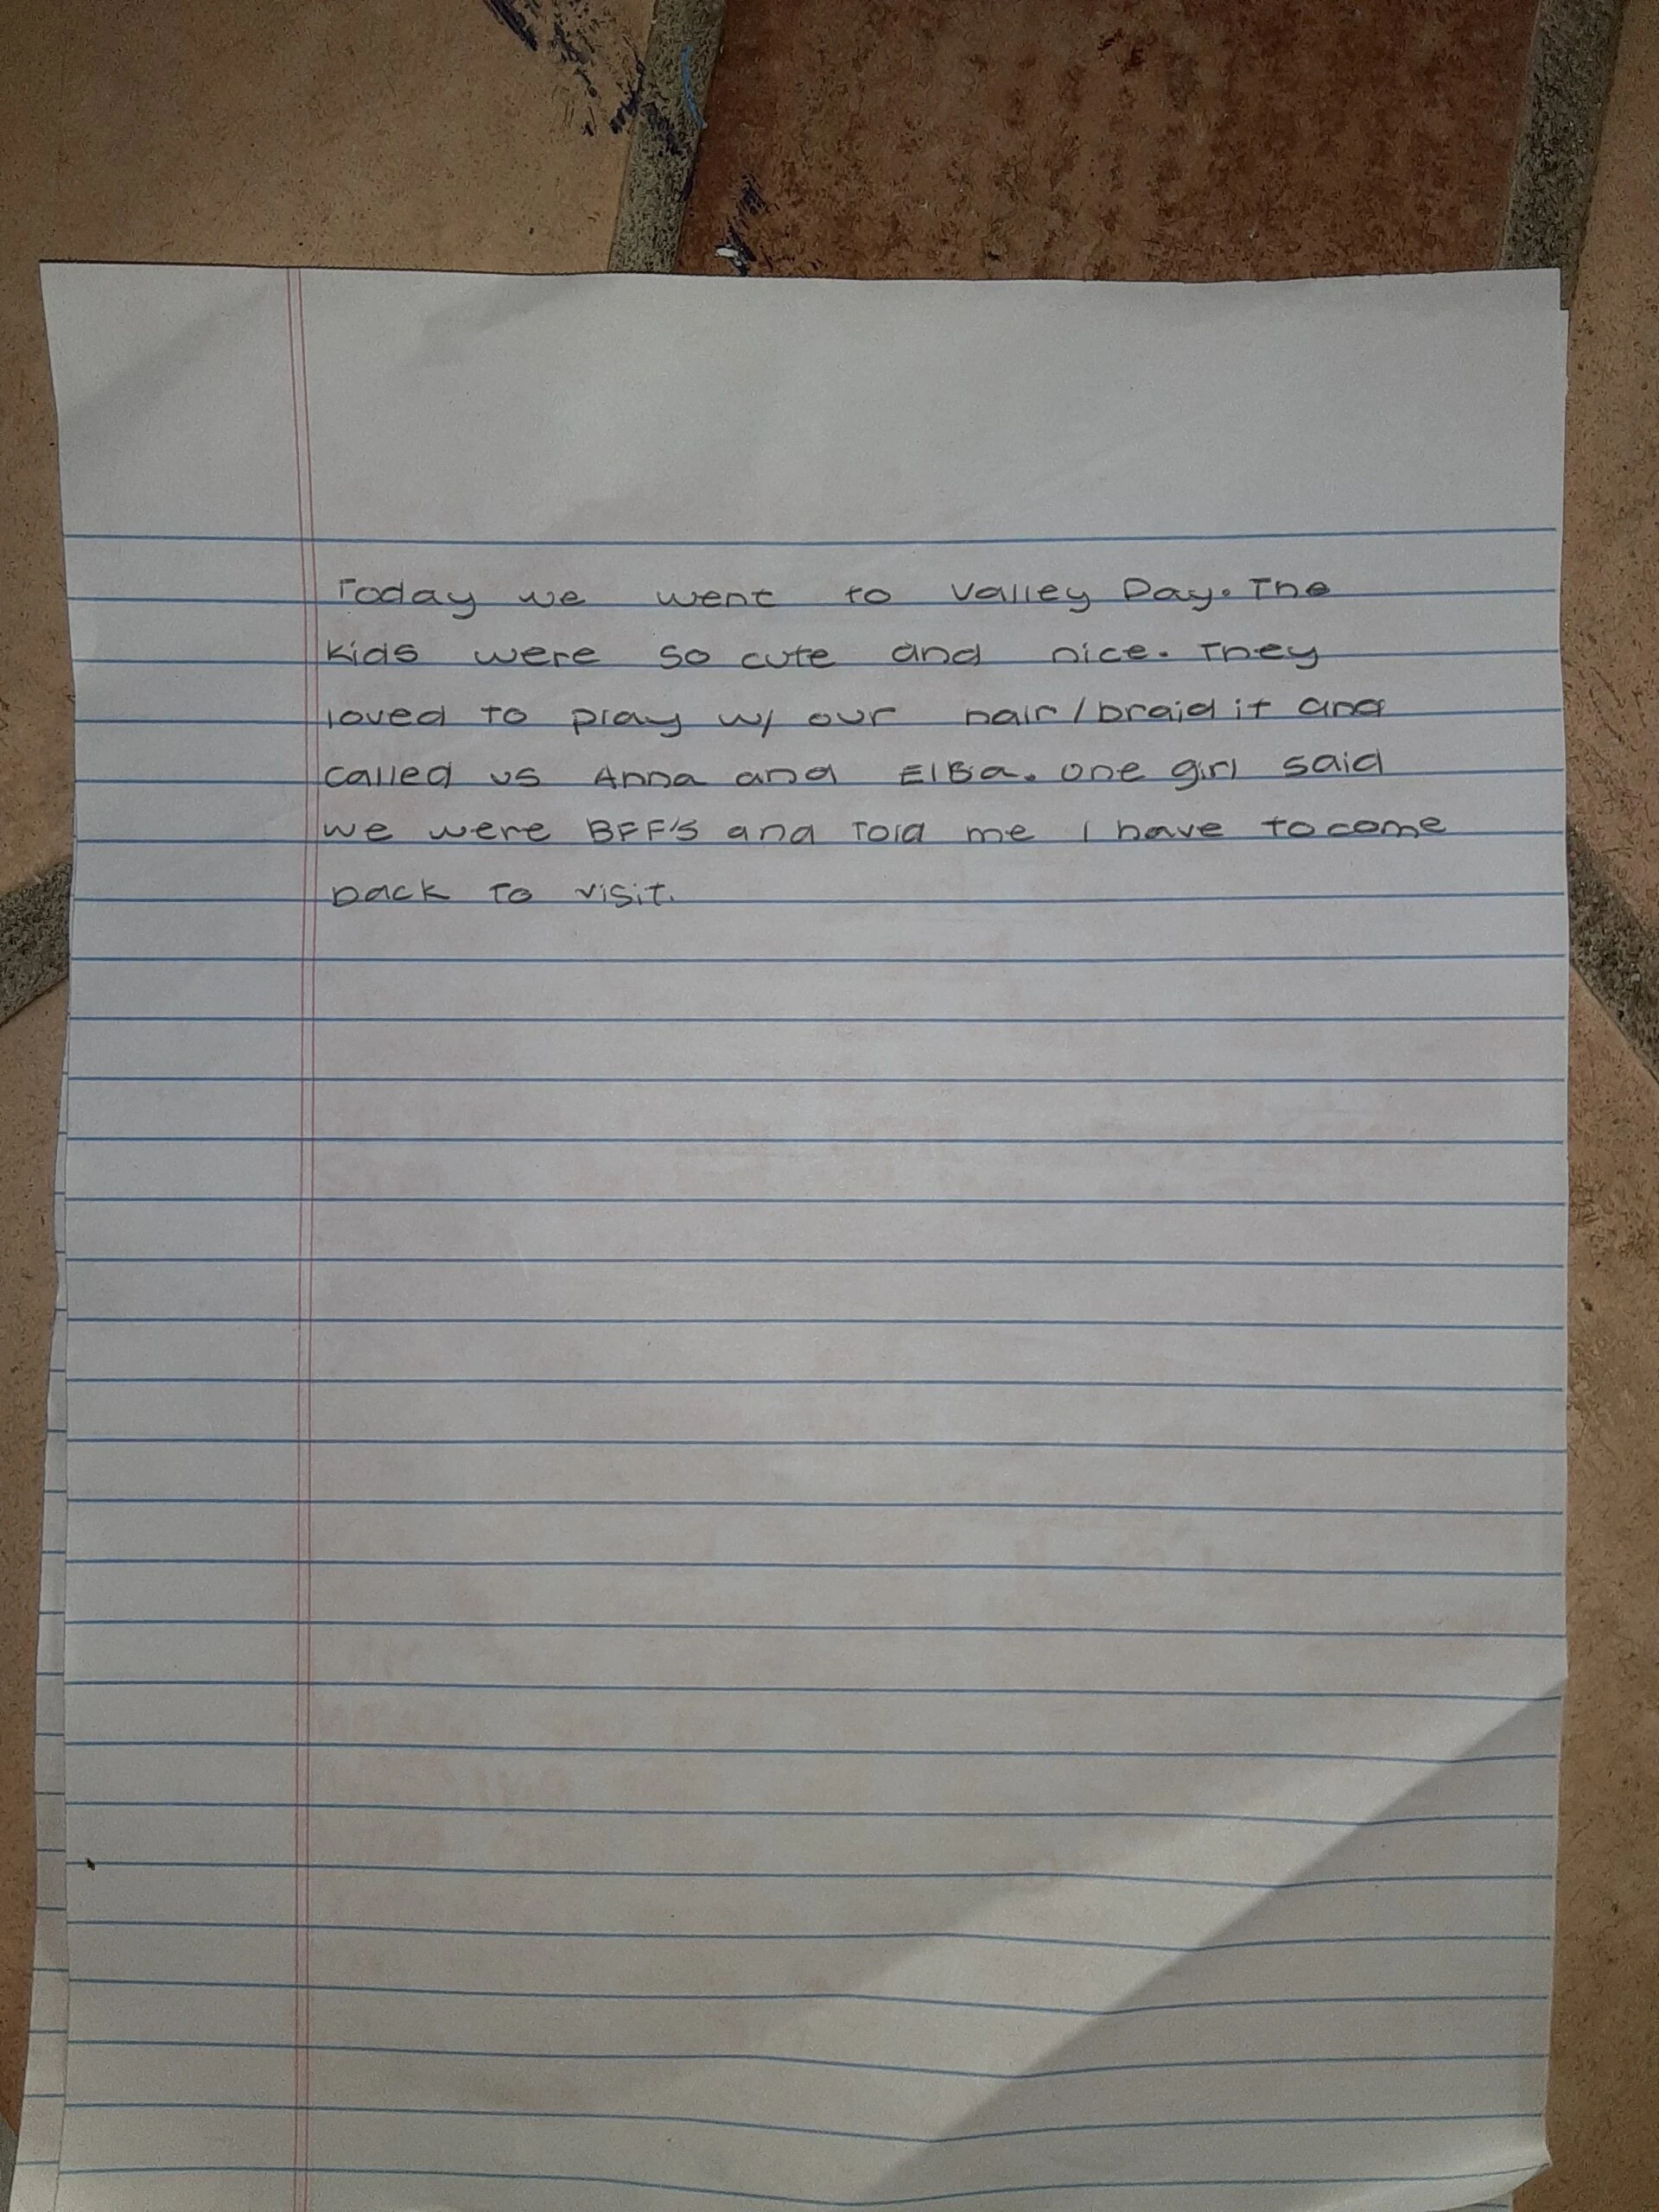 Today we went to Valley Day. The
kids were so cute and nice. They
loved to play w/ our hair/braid it and
called us Anna and ElBa. One girl said
we were BFF's and told me I have to come
back to visit.